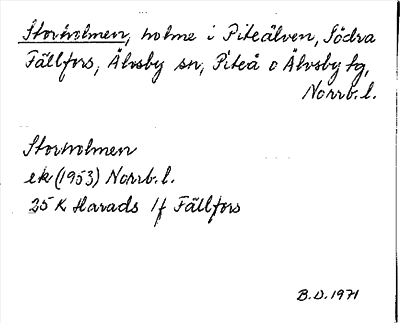 Storholmen, holme i Piteälven, Södra
Fällfors, Älvsby sn, Piteå o Älvsby tg,
Norrb.l.
Storholmen
ek (1953) Norrb.l.
25 K Harads 1f Fällfors
B.D. 1971